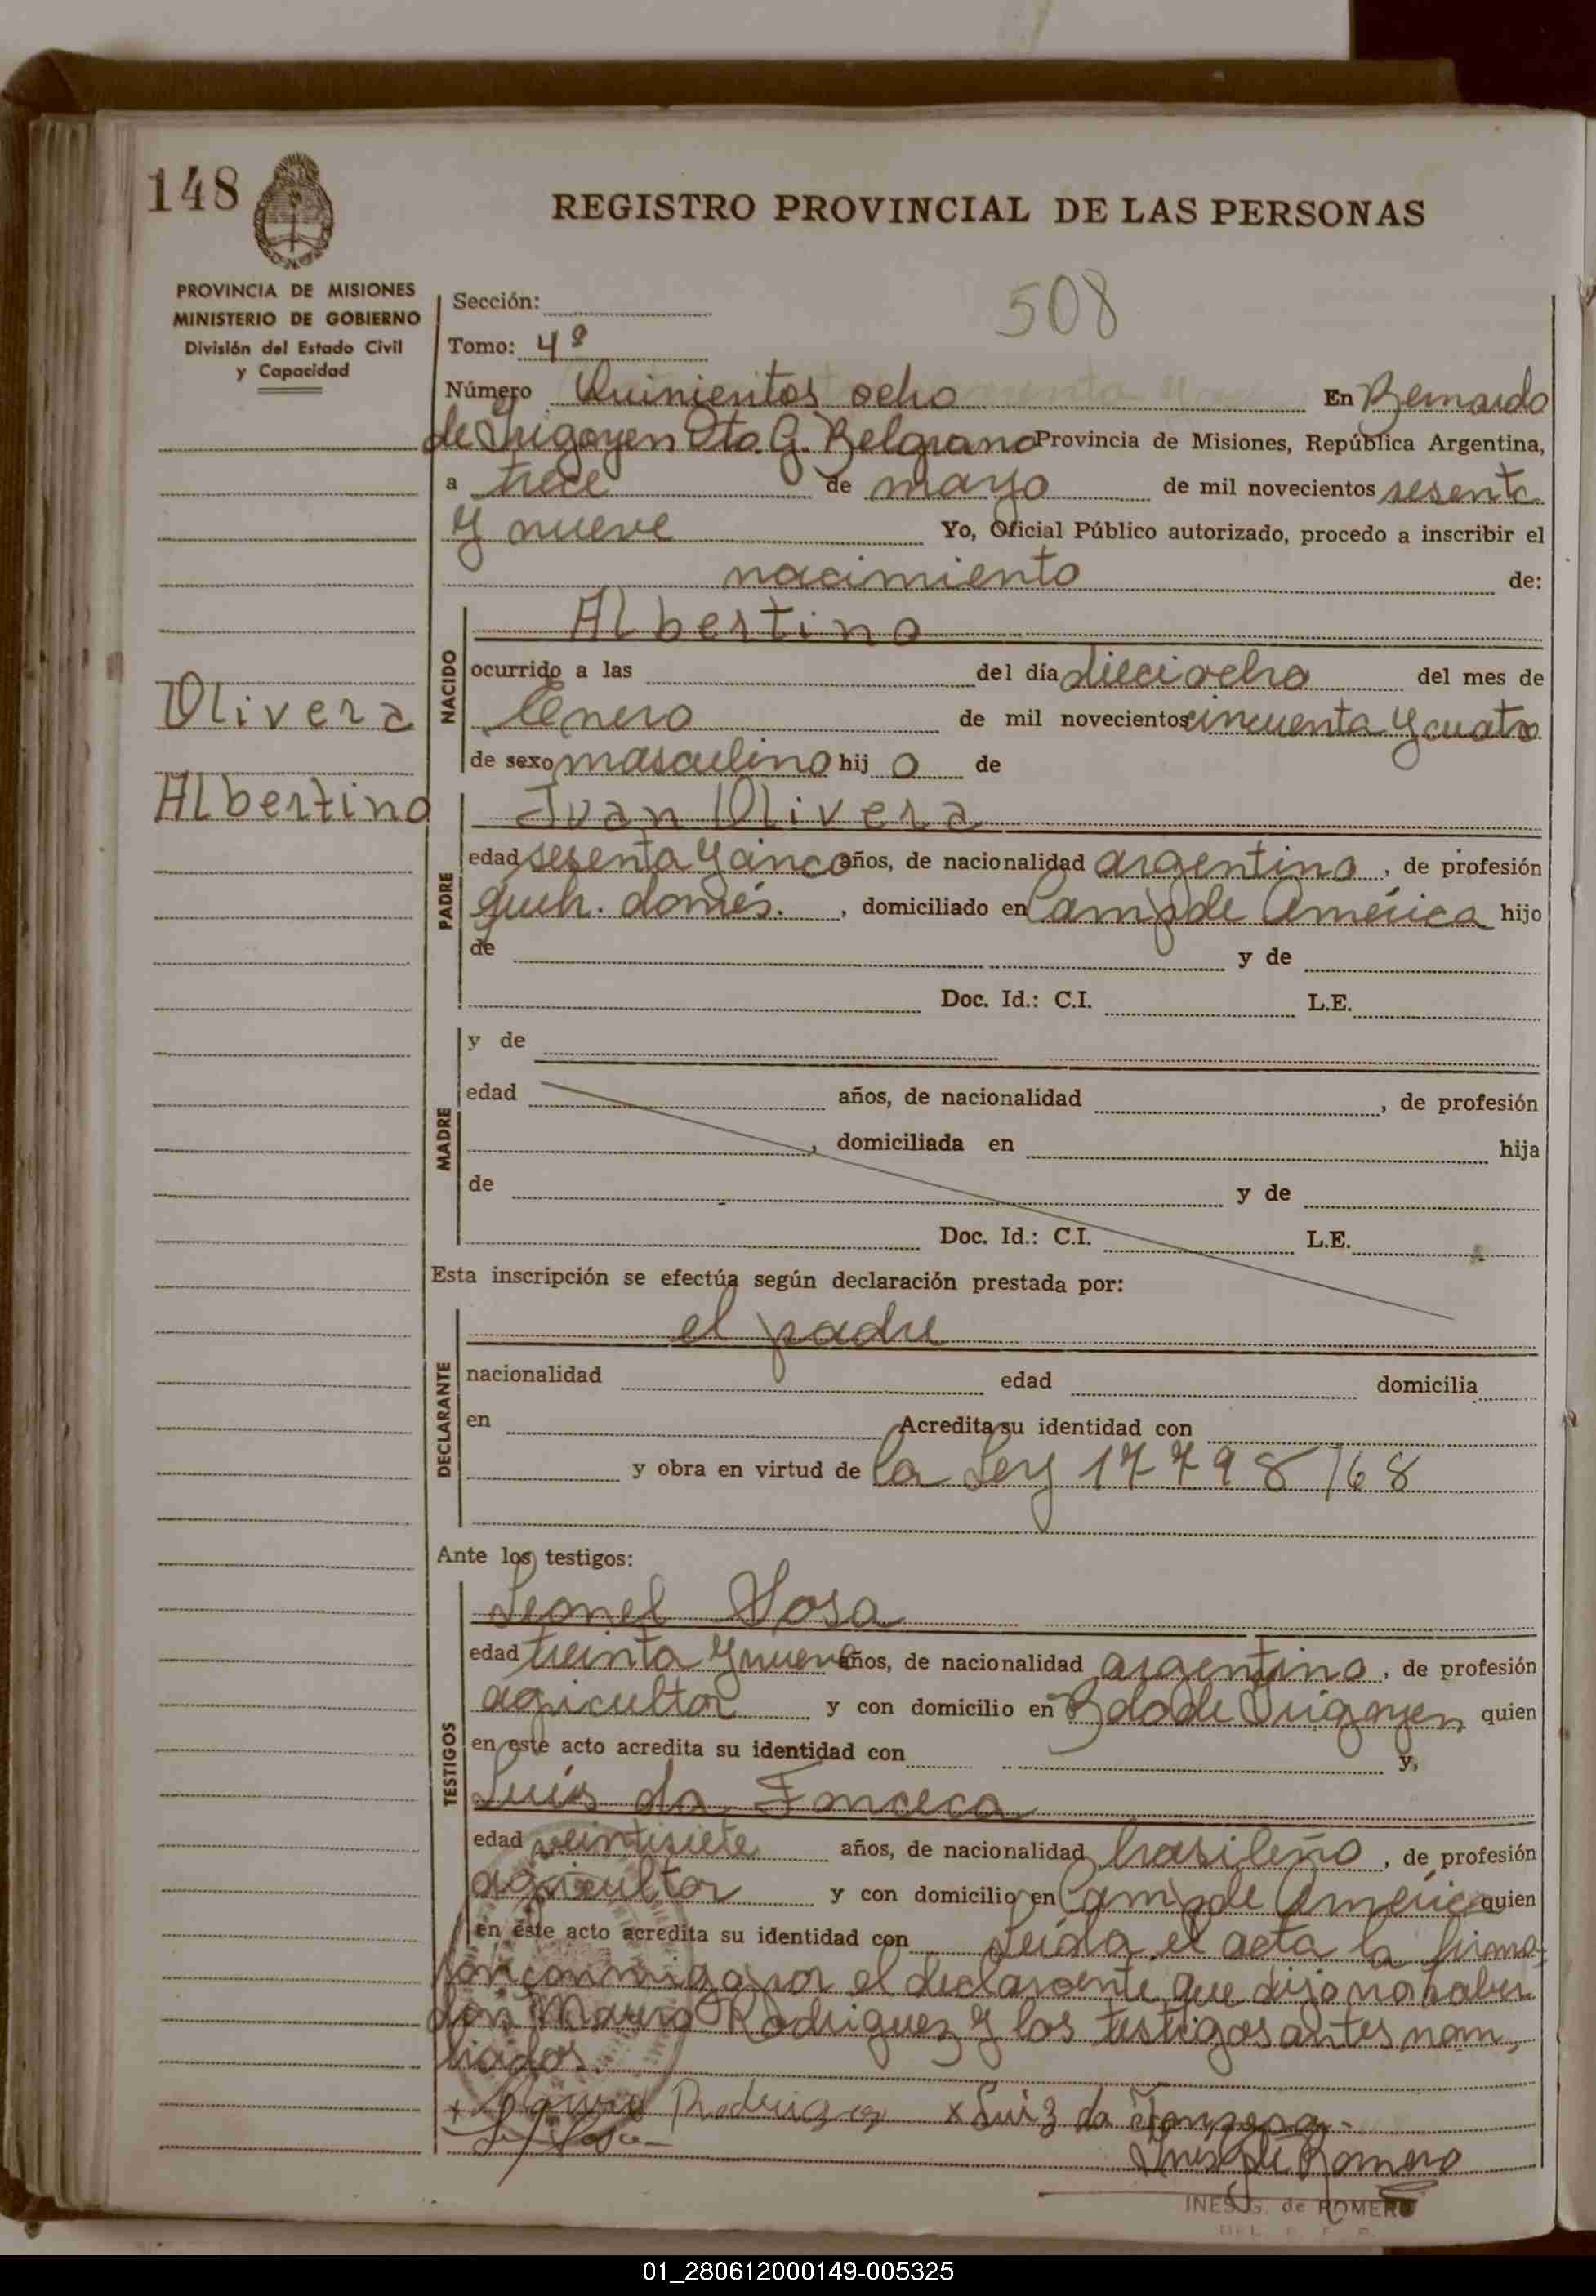 148
REGISTRO PROVINCIAL DE LAS PERSONAS
PROVINCIA DE MISIONES
MINISTERIO DE GOBIERNO
División del Estado Civil
y Capacidad
508
Sección:
Tomo: 4º
Número Quinientos ocho En Bernardo
de Irigoyen Dto. G. Belgrano Provincia de Misiones, República Argentina,
a trece de mayo de mil novecientos sesenta
y nueve Yo, Oficial Público autorizado, procedo a inscribir el
nacimiento de:
Olivera
Albertino
NACIDO
Albertino
ocurrido a las del día dieciocho del mes de
Enero de mil novecientos cincuenta y cuatro
de sexo masculino hij o de
PADRE
Juan Olivera
edad sesenta y cinco años, de nacionalidad argentino, de profesión
queh. domés. , domiciliado en Camp de América hijo
de y de
Doc. Id.: C.I. L.E.
MADRE
y de
edad años, de nacionalidad , de profesión
, domiciliada en hija
de y de
Doc. Id.: C.I. L.E.
Esta inscripción se efectúa según declaración prestada por:
DECLARANTE
el padre
nacionalidad edad domicilia
en Acredita su identidad con
y obra en virtud de la Ley 17798/68
Ante los testigos:
TESTIGOS
Leonel Sosa
edad treinta y nueve años, de nacionalidad argentino, de profesión
agricultor y con domicilio en Bdo de Irigoyen quien
en este acto acredita su identidad con y,
Luis da Fonceca
edad veintisiete años, de nacionalidad brasileño, de profesión
agricultor y con domicilio en Camp de América quien
en este acto acredita su identidad con Leida el acta la firma,
ron conmigo por el declarante que dijo no saber
don Mauro Rodriguez y los testigos antes nom,
brados.
x Mauro Rodriguez x Luiz da Fonceca
Ines G. de Romero
INES G. de ROMERO
01_280612000149-005325